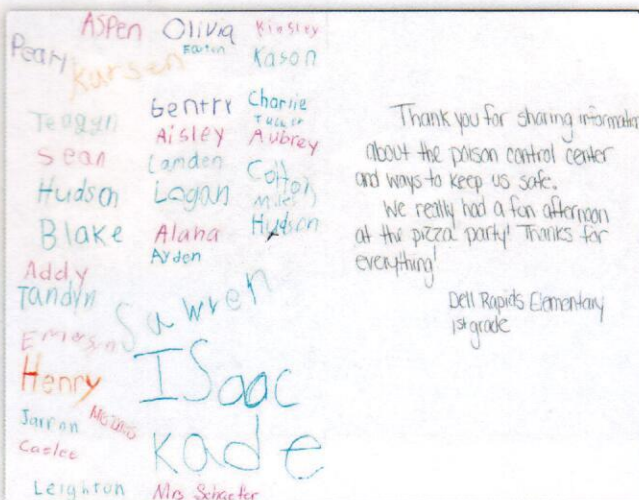 Aspen
Olivia
Kinsley
Pearl
Easton
Kason
Kursen
Gentry
Charlie
Teagyn
Tucker
Aisley
Aubrey
Sean
Landen
Colton
Hudson
Logan
Miles
Hudson
Blake
Alana
Ayden
Addy
Tandyn
Sawren
Emersyn
Isaac
Henry
Jarron
Caslee
Kade
Leighton
Mrs Schaefer
Thank you for sharing information
about the poison control center
and ways to keep us safe.
We really had a fun afternoon
at the pizza party! Thanks for
everything!
Dell Rapids Elementary
1st grade